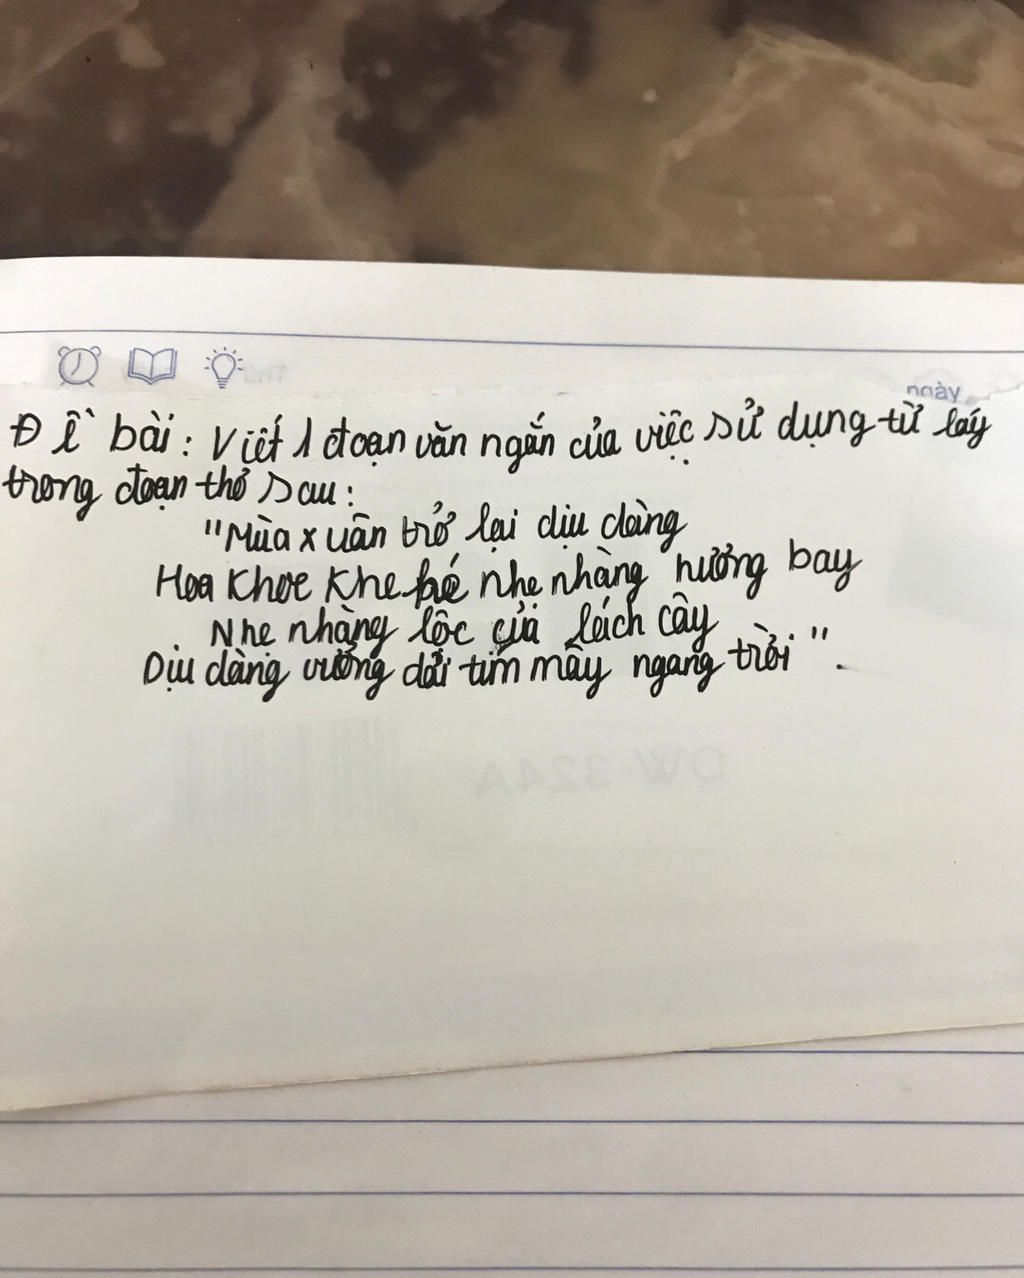 ngày
Đề bài: Viết 1 đoạn văn ngắn của việc sử dụng từ láy
trong đoạn thơ sau:
"Mùa xuân trở lại dịu dàng
Hoa khoe khe kẽ nhẹ nhàng hương bay
Nhẹ nhàng lộc của lách cây
Dịu dàng vương dải tím mây ngang trời".
QW-324A